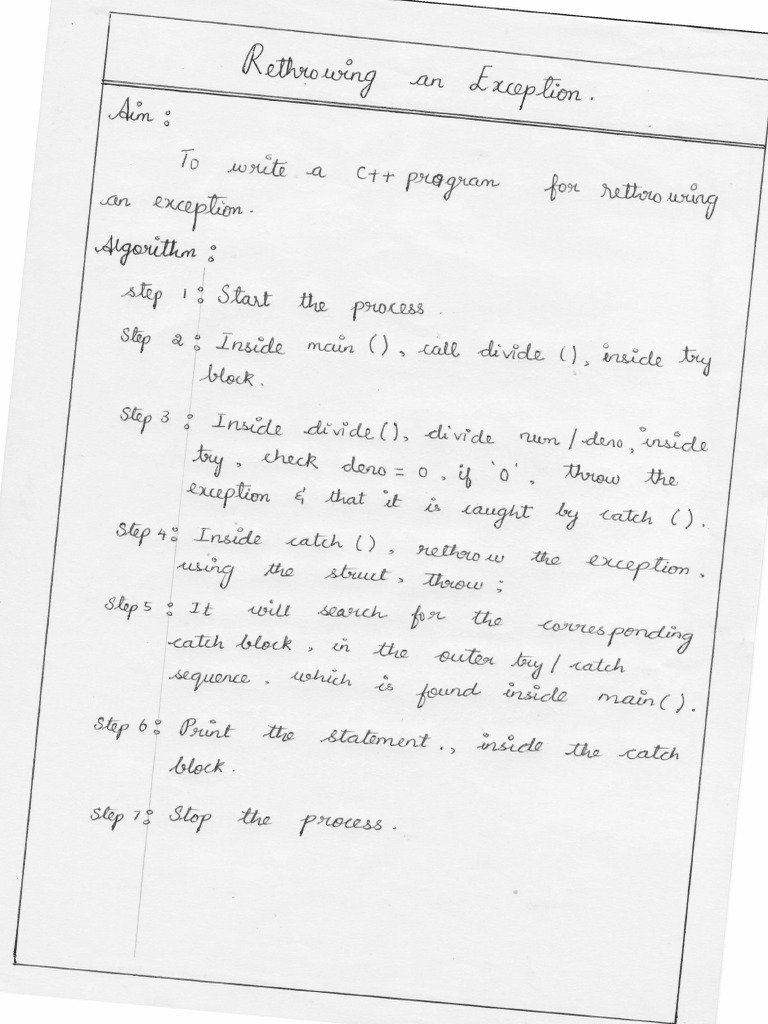 Rethrowing an Exception.
Aim :
To write a C++ program for rethrowing
an exception.
Algorithm :
step 1 : Start the process.
Step 2 : Inside main (), call divide (), inside try
block.
Step 3 : Inside divide(), divide num / deno, inside
try, check deno = 0, if '0', throw the
exception & that it is caught by catch ().
Step 4 : Inside catch (), rethrow the exception,
using the struct, throw ;
Step 5 : It will search for the corresponding
catch block, in the outer try / catch
sequence. which is found inside main().
Step 6 : Print the statement., inside the catch
block.
Step 7 : Stop the process.